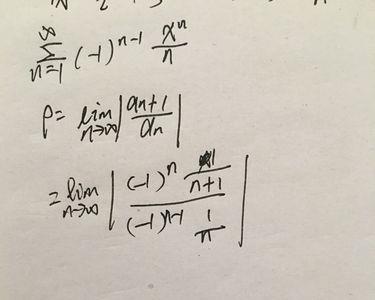 ∑_{n=1}^{∞} (-1)^{n-1} x^n/n
ρ = lim_{n→∞} |a_{n+1}/a_n|
= lim_{n→∞} |((-1)^n 1/(n+1))/((-1)^{n-1} 1/n)|